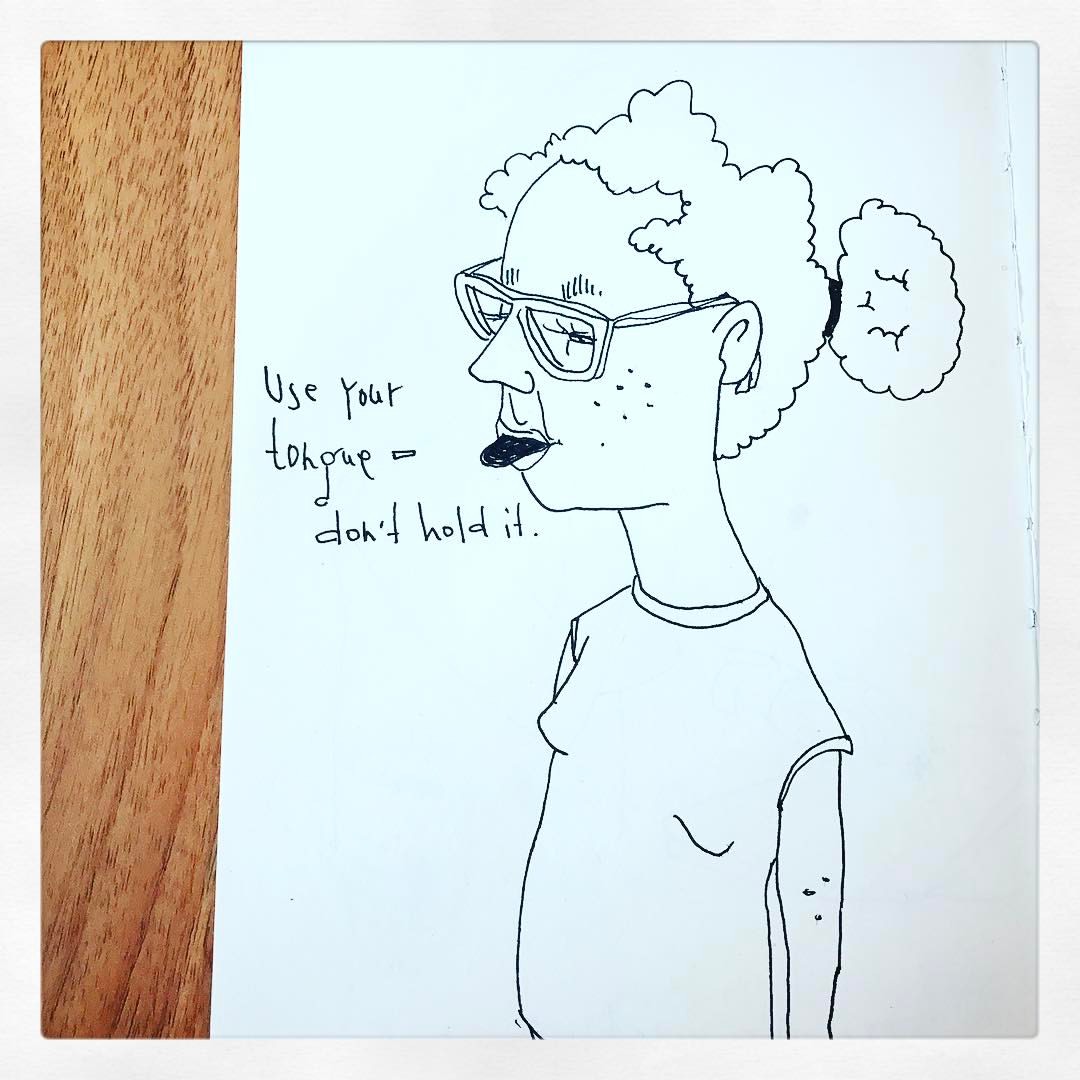 Use your
tongue –
don't hold it.